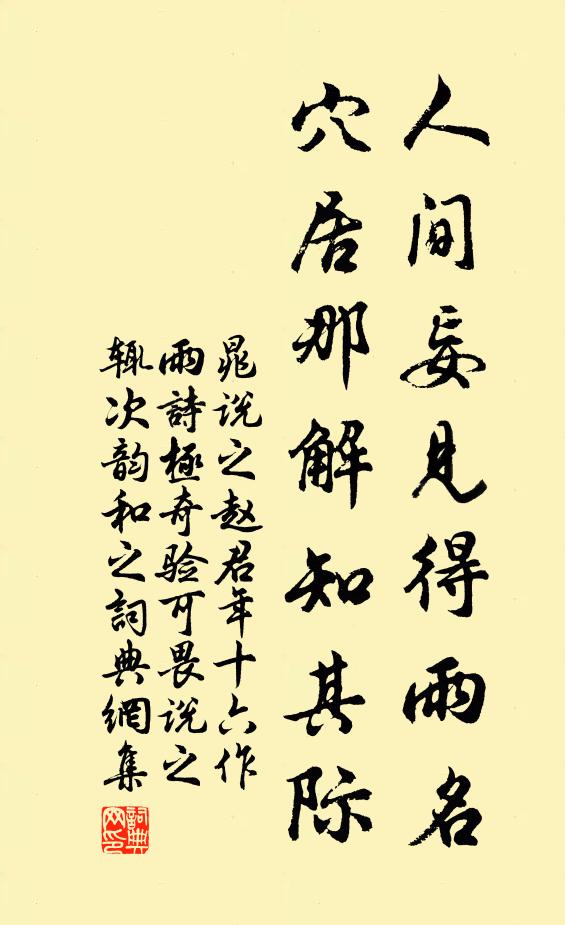 人间妄见得雨名
穴居那解知其际
晁说之赵君年十六作
雨詩極奇验可畏说之
辄次韵和之詞典網集
詞典
网印